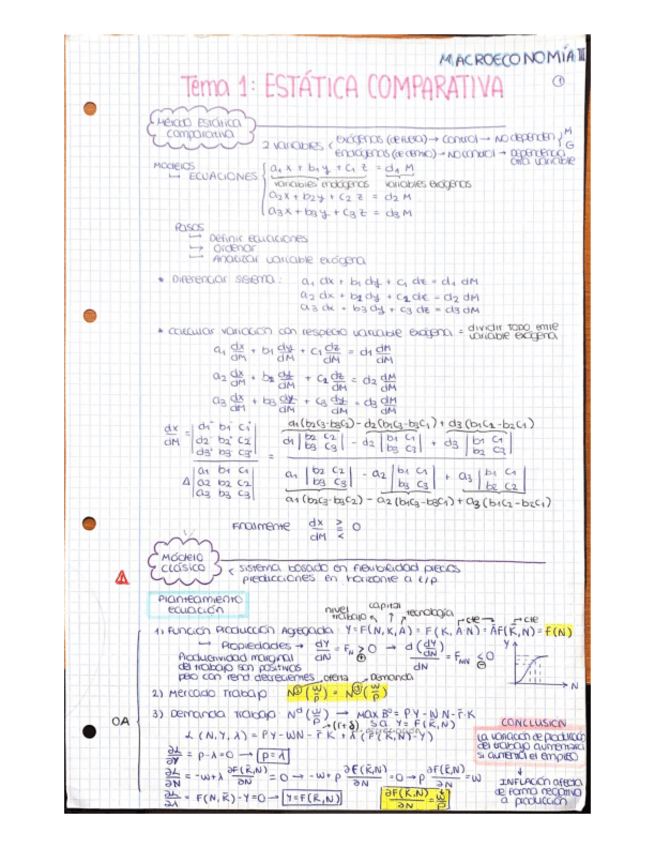 MACROECONOMÍA III
Tema 1: ESTÁTICA COMPARATIVA
1
Método Estática
comparativa
2 variables < exógenas (de fuera) → control → No dependen } M G
endógenas (de dentro) → No control → Dependencia
otra variable
Modelos
↳ ECUACIONES { a₁x + b₁y + c₁z = d₁M
variables endógenas variables exógenas
a₂x + b₂y + c₂z = d₂M
a₃x + b₃y + c₃z = d₃M
Pasos
↳ Definir ecuaciones
↳ Ordenar
↳ Analizar variable exógena
* Diferenciar sistema: a₁dx + b₁dy + c₁dz = d₁dM
a₂dx + b₂dy + c₂dz = d₂dM
a₃dx + b₃dy + c₃dz = d₃dM
* calcular variación con respecto variable exógena = dividir todo entre
variable exógena
a₁ dx/dM + b₁ dy/dM + c₁ dz/dM = d₁ dM/dM
a₂ dx/dM + b₂ dy/dM + c₂ dz/dM = d₂ dM/dM
a₃ dx/dM + b₃ dy/dM + c₃ dz/dM = d₃ dM/dM
d₁(b₂c₃-b₃c₂) - d₂(b₁c₃-b₃c₁) + d₃(b₁c₂-b₂c₁)
dx/dM = |d₁ b₁ c₁; d₂ b₂ c₂; d₃ b₃ c₃| = d₁|b₂ c₂; b₃ c₃| - d₂|b₁ c₁; b₃ c₃| + d₃|b₁ c₁; b₂ c₂|
Δ |a₁ b₁ c₁; a₂ b₂ c₂; a₃ b₃ c₃| a₁|b₂ c₂; b₃ c₃| - a₂|b₁ c₁; b₃ c₃| + a₃|b₁ c₁; b₂ c₂|
a₁(b₂c₃-b₃c₂) - a₂(b₁c₃-b₃c₁) + a₃(b₁c₂-b₂c₁)
Finalmente dx/dM ⪌ 0
Modelo
clásico
< sistema basado en flexibilidad precios
predicciones en horizonte a l/p
Planteamiento
ecuación
nivel trabajo capital tecnología cte cte
1. Función Producción Agregada: Y=F(N,K,A) = F(K,A·N) = ĀF(K̄,N) = F(N)
↳ Propiedades → dY/dN = F_N > 0 → d(dY/dN)/dN = F_NN < 0
⊕ ⊖
Y
N
Productividad marginal
del trabajo son positivas
pero con rend decrecientes
oferta Demanda
2) Mercado Trabajo N^s(W/P) = N^d(W/P)
OA
3) Demanda Trabajo N^d(W/P) → Max B° = PY - WN - r̄K
(r+δ) s.a Y = F(K̄,N)
L(N,Y,λ) = PY - WN - r̄K + λ(F(K̄,N)-Y)
∂L/∂Y = P-λ=0 → P=λ
∂L/∂N = -W+λ ∂F(K̄,N)/∂N = 0 → -W+P ∂F(K̄,N)/∂N = 0 → P ∂F(K̄,N)/∂N = W
∂L/∂λ = F(N,K̄)-Y=0 → Y=F(K̄,N)
∂F(K̄,N)/∂N = W/P
CONCLUSIÓN
La variación de producción
del trabajo aumentará
si aumenta el empleo
↓
INFLACIÓN afecta
de forma negativa
a producción